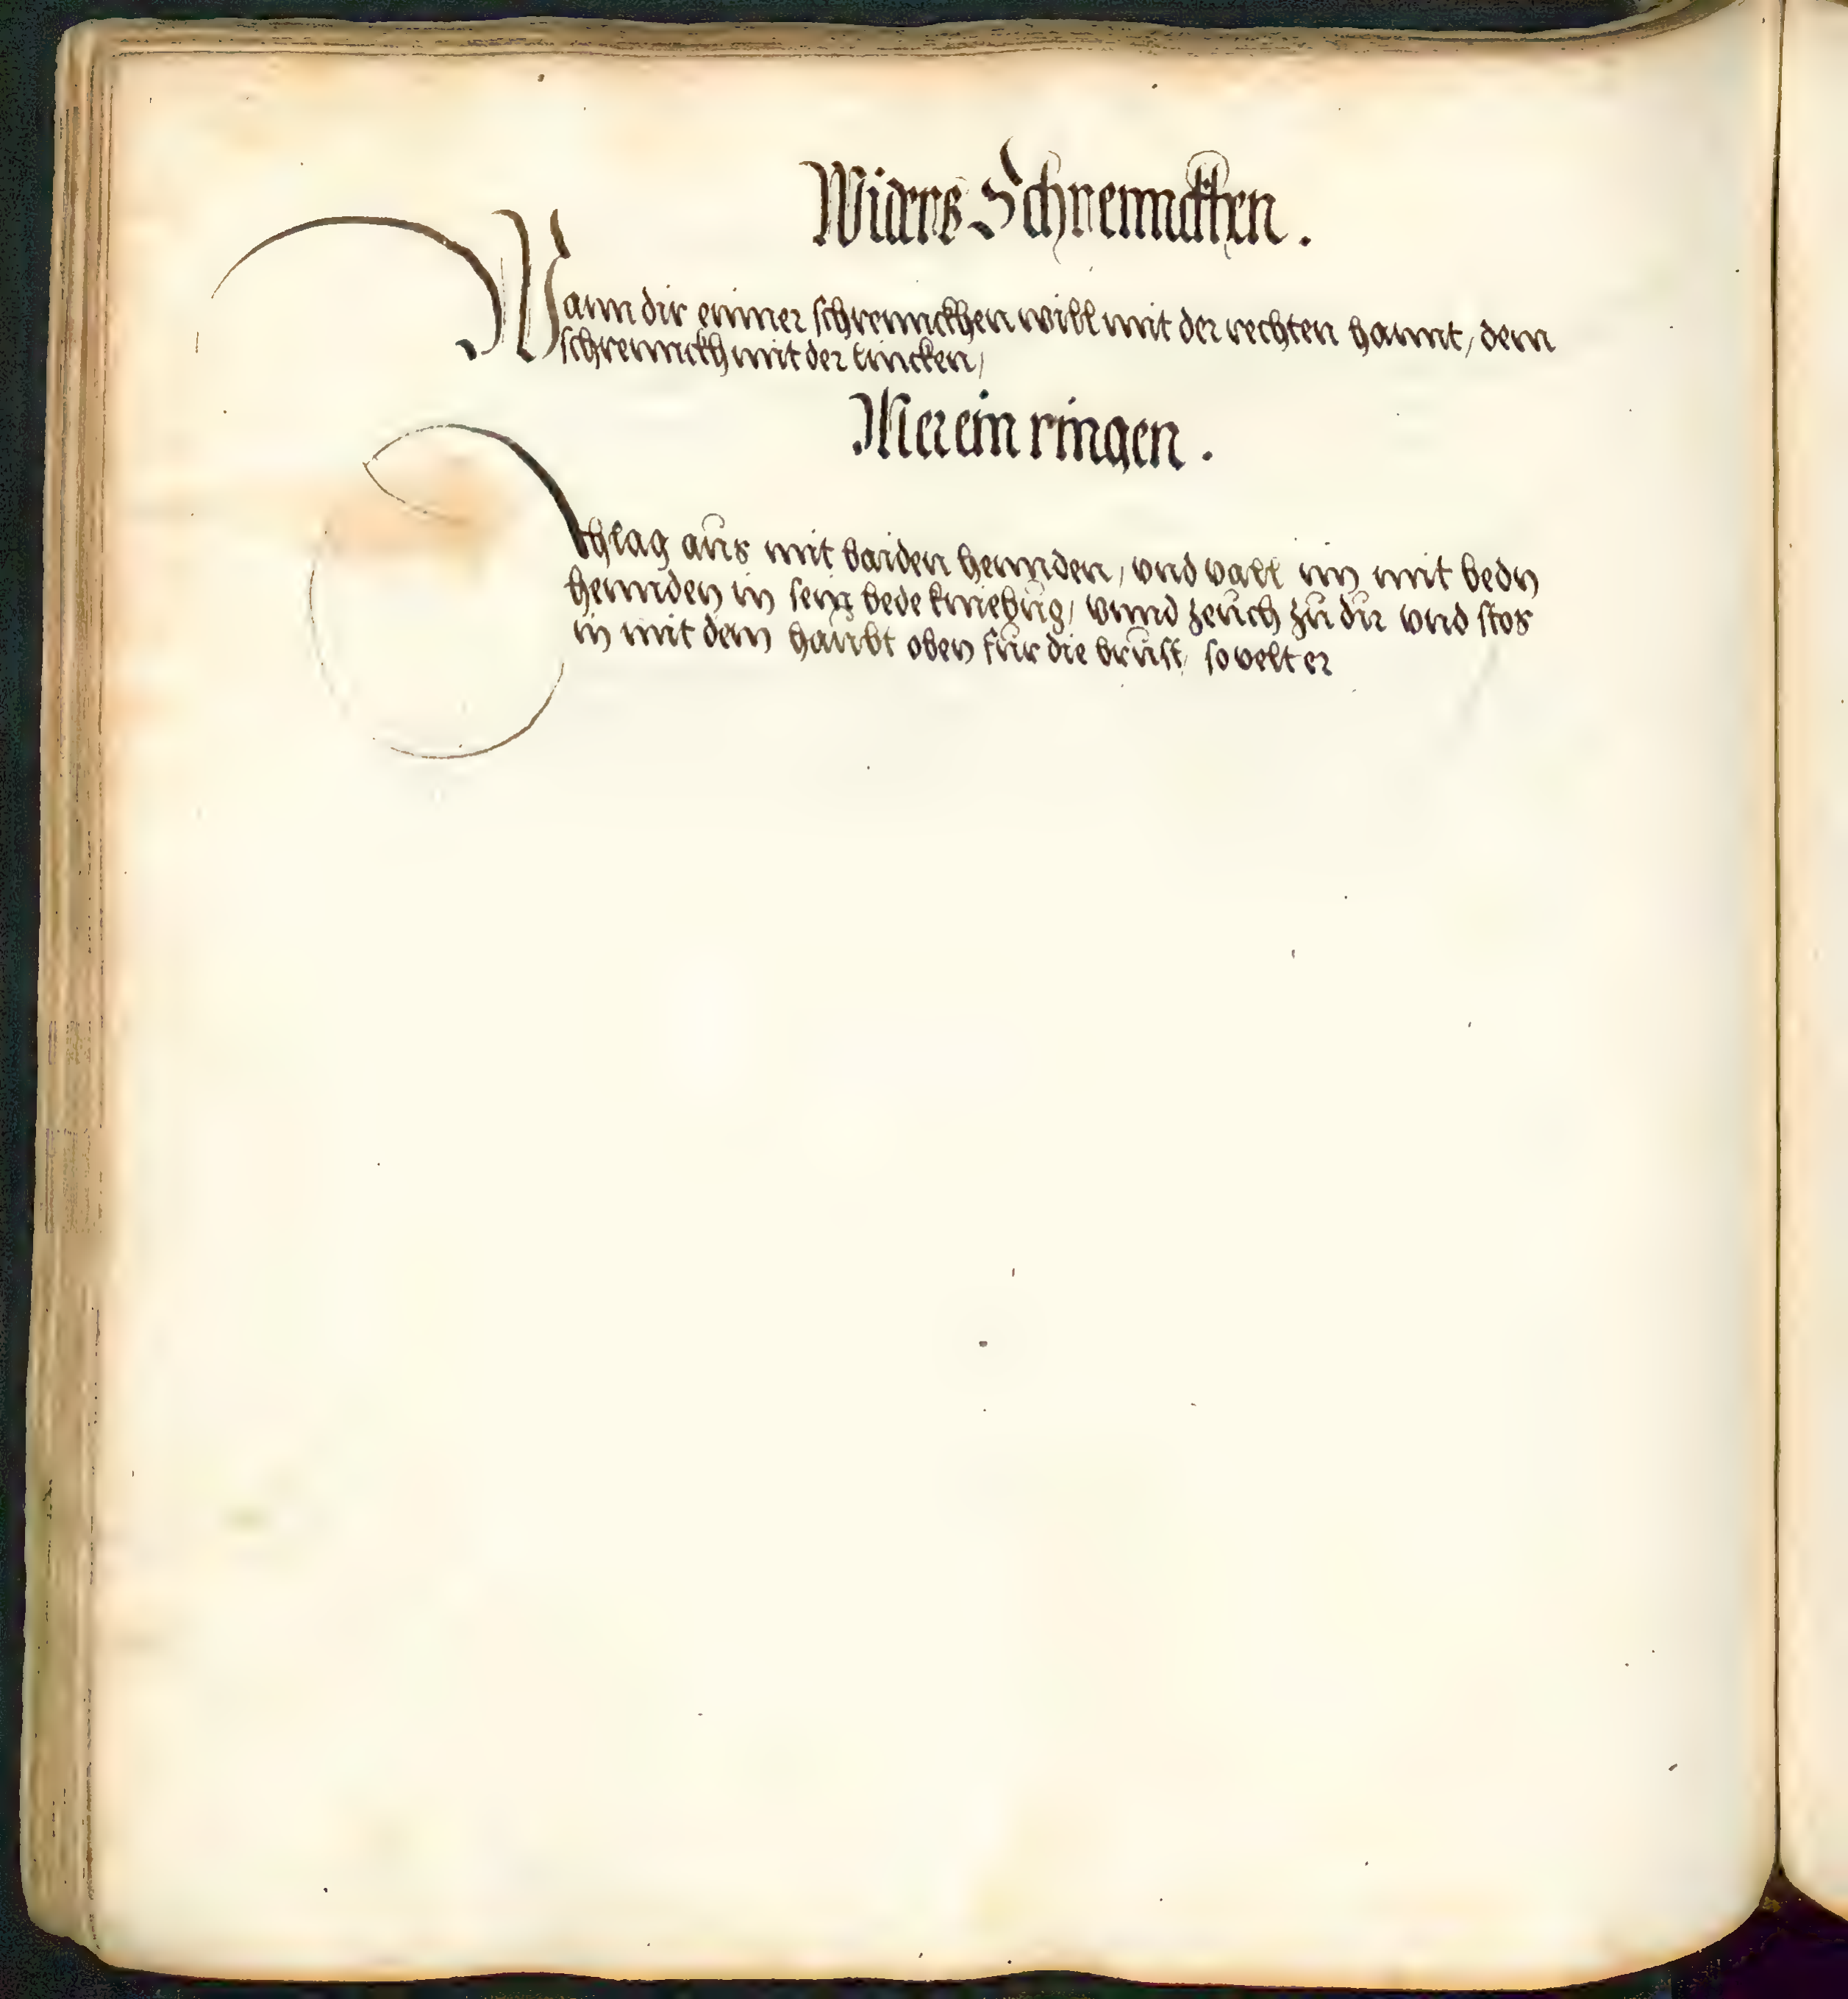 Widers Schrennckhen.
Wann dir einner schrennckhen will mit der rechten hannt, dem
schrennckh mit der lincken,
Mer ein ringen.
Schlag aus mit baiden hennden, und vall im mit bedn
hennden in sein bede kniebug, vnnd zeuch zu dir und stos
in mit dem haubt oben für die brust, so velt er